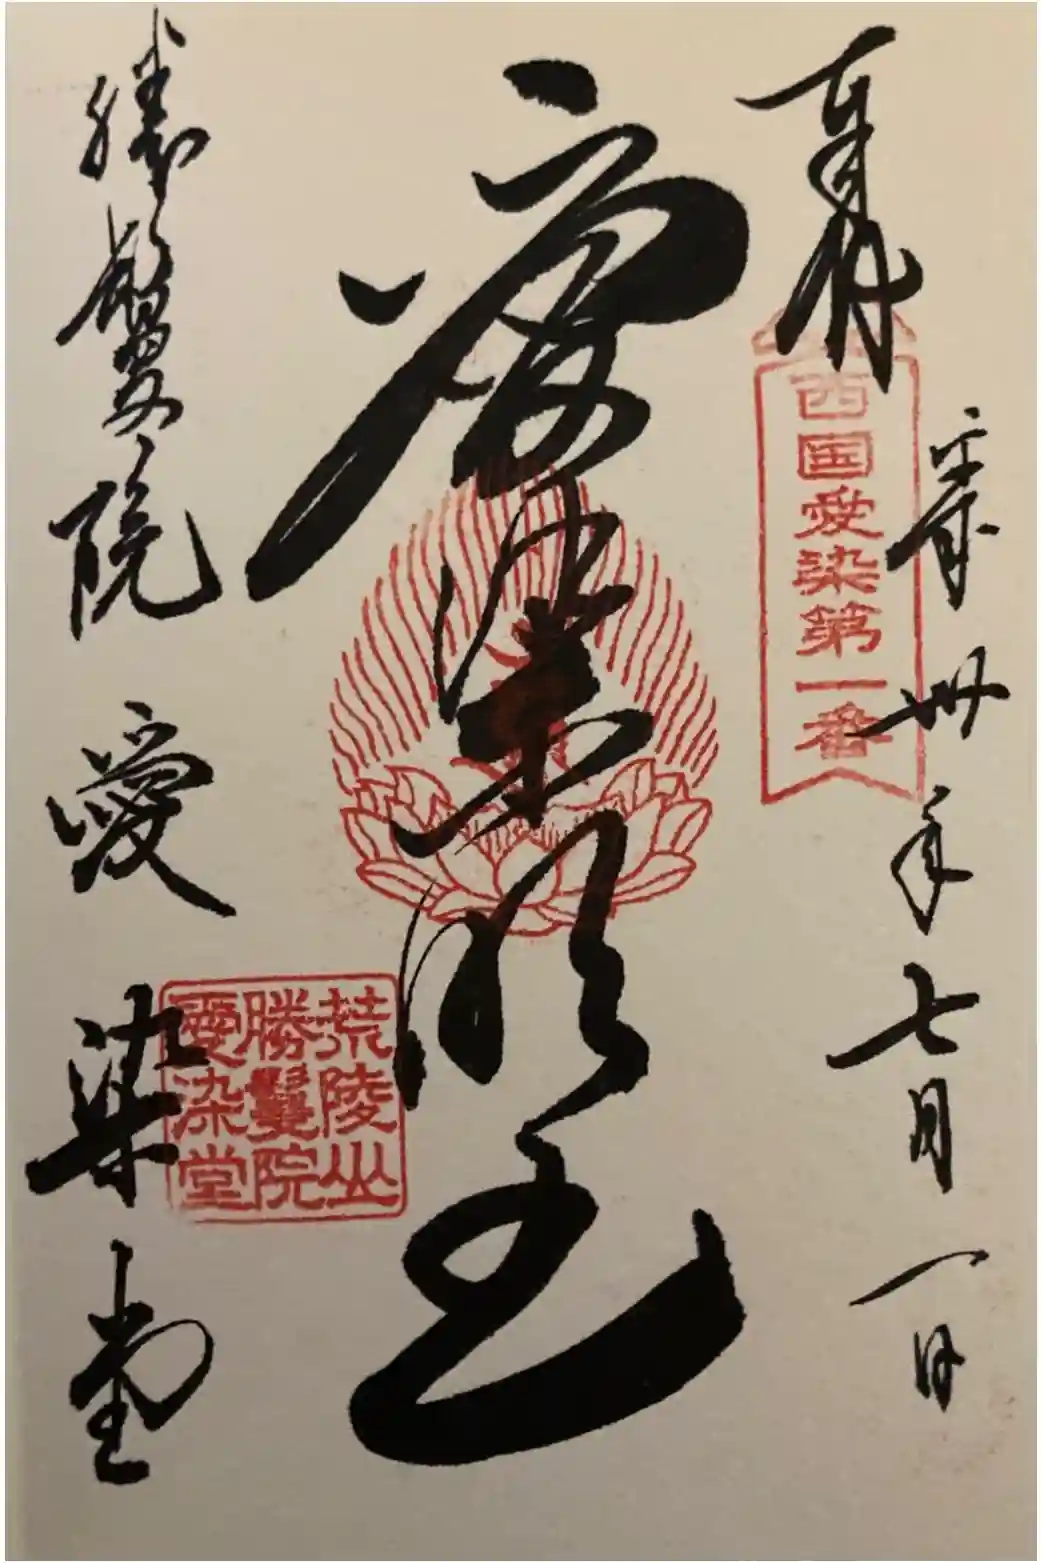 奉拝
平成卅年七月一日
西国愛染第一番
愛染明王
荒陵山
勝鬘院
愛染堂
勝鬘院 愛染堂